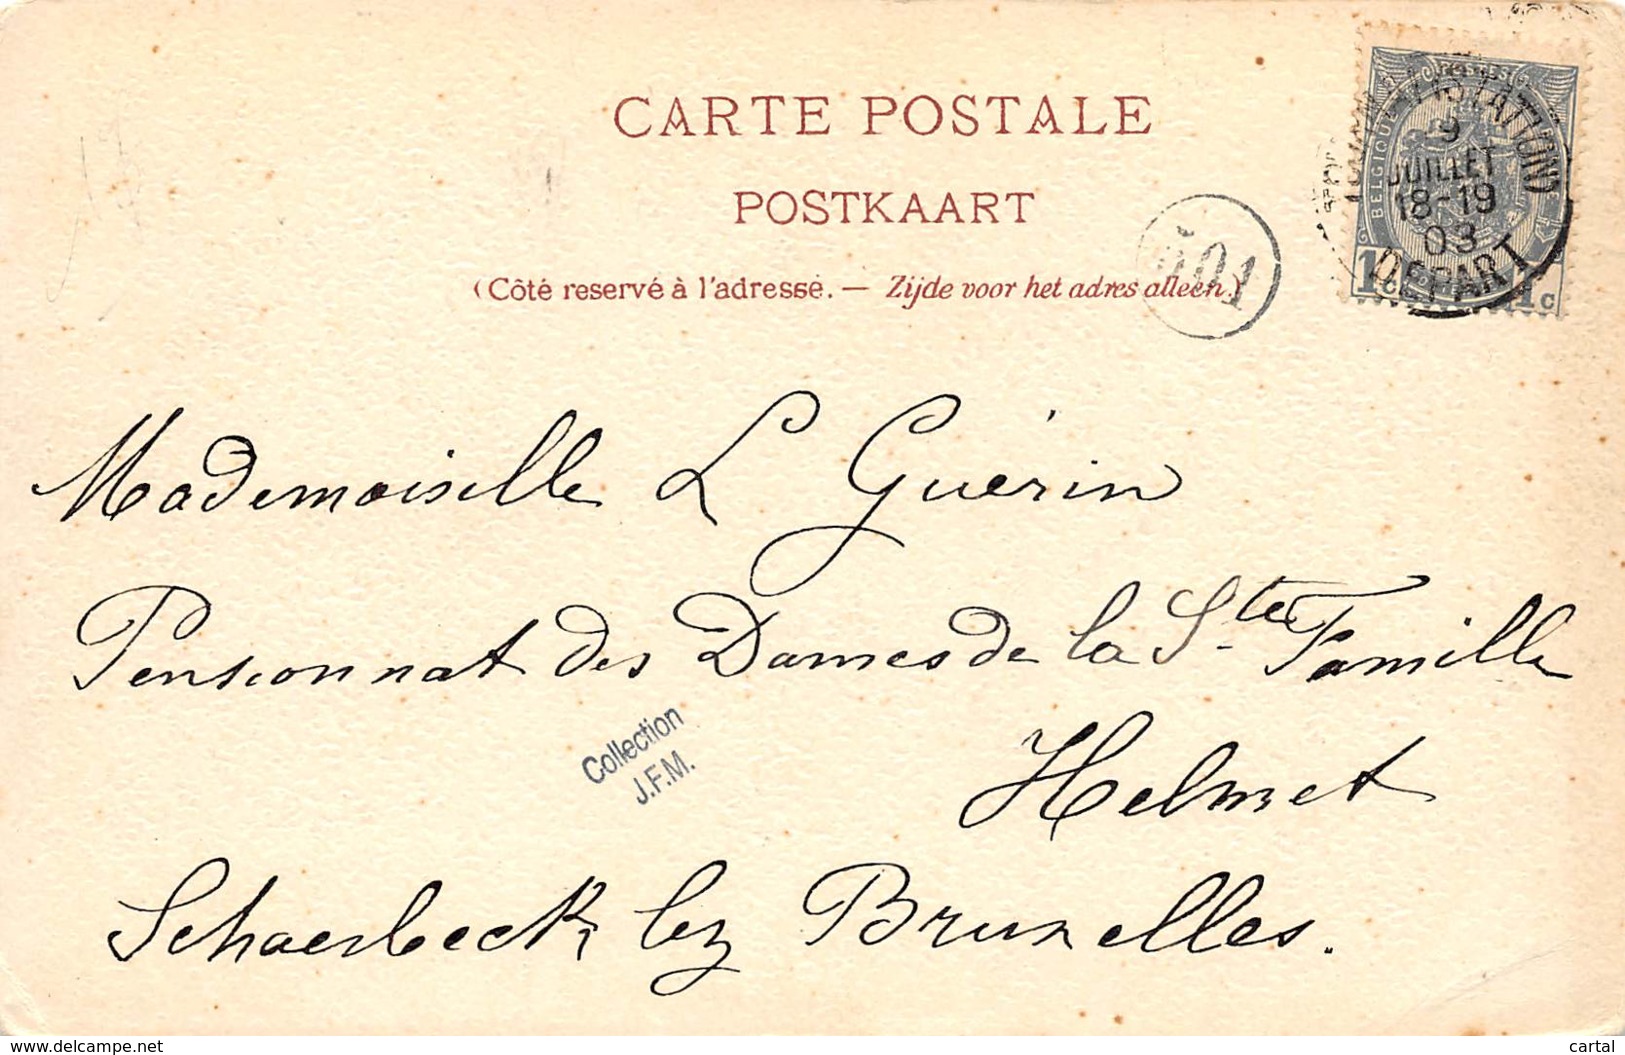 CARTE POSTALE
POSTKAART
(Côté reservé à l'adresse. — Zijde voor het adres alleen.)
BELGIQUE
(STATION)
9
JUILLET
18-19
03
DEPART
1c 1c
Mademoiselle L Guérin
Pensionnat des Dames de la Ste Famille
Helmet
Schaerbeek lez Bruxelles.
Collection
J.F.M.
www.delcampe.net
cartal